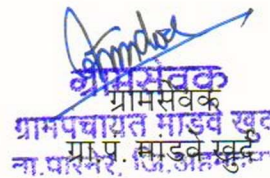 ग्रामसेवक
ग्रामसेवक
ग्रामपंचायत मांडवे खुर्द
ग्रा.पं. मांडवे खुर्द
ता.पारनेर, जि.अहम